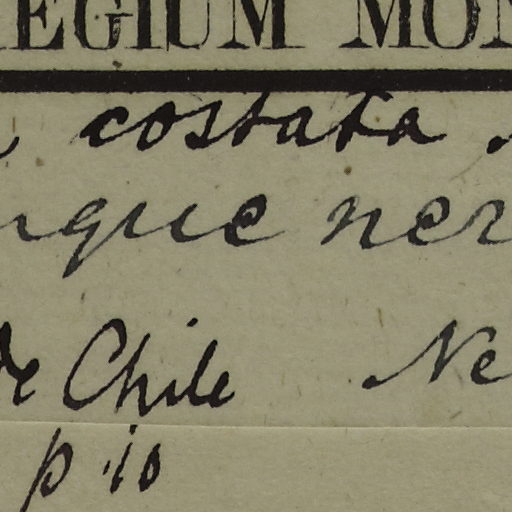 EGIUM MON
costata
que ner
de Chile Ne
p. 10